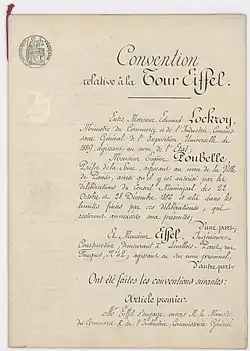 Convention
relative à la Tour Eiffel.
Entre Monsieur Edouard Lockroy,
Ministre du Commerce et de l'Industrie, Commis-
saire Général de l'Exposition Universelle de
1889, agissant au nom de l'Etat,
Monsieur Eugène Poubelle
Préfet de la Seine, agissant au nom de la Ville
de Paris, ainsi qu'il y est autorisé par les
délibérations du Conseil Municipal des 22
Octobre et 28 Décembre 1886 et cela dans les
limites fixées par ces délibérations qui
resteront annexées aux présentes;
d'une part,
Et Monsieur Eiffel, Ingénieur-
Constructeur demeurant à Levallois-Perret, rue
Fouquet, N° 42, agissant en son nom personnel,
d'autre part.
Ont été faites les conventions suivantes:
Article premier.
Mr Eiffel s'engage envers M. le Ministre
du Commerce & de l'Industrie, Commissaire Général